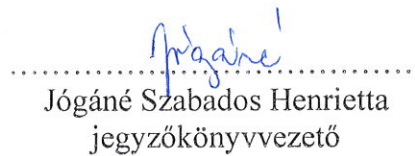 Jógáné
Jógáné Szabados Henrietta
jegyzőkönyvvezető